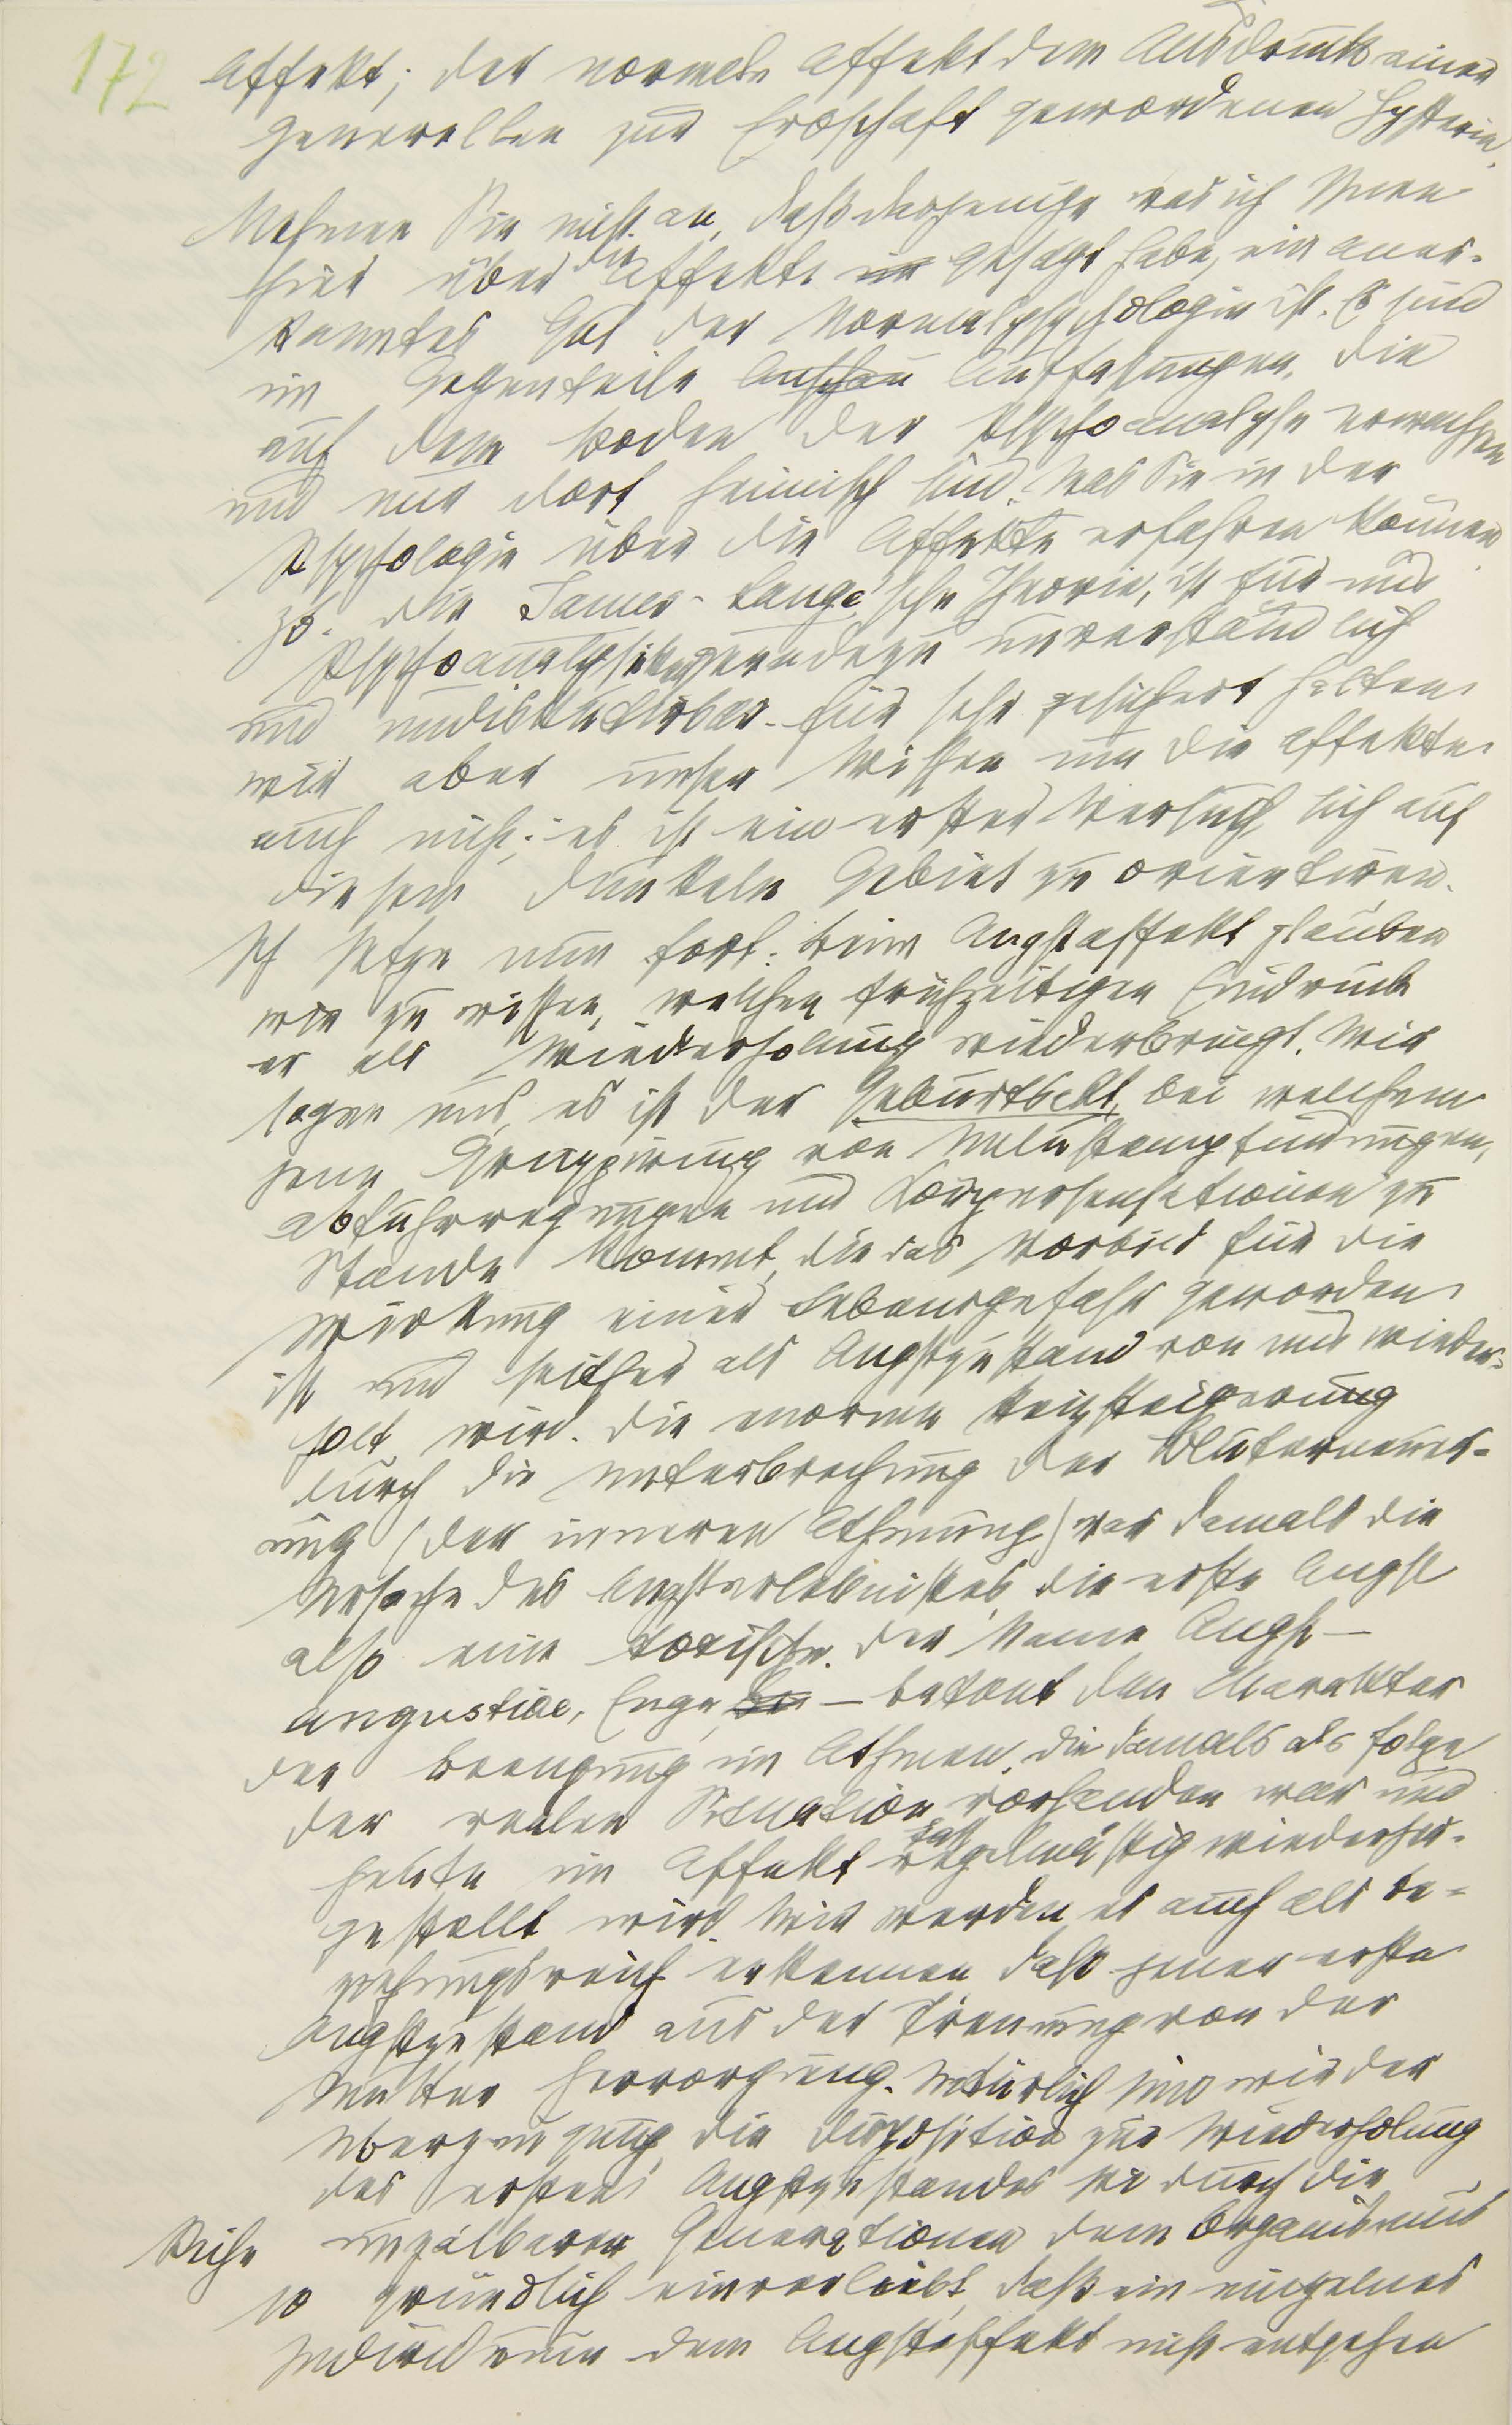 172
Affekt; der normale Affekt dem Ausdruck einer
generellen zur Erbschaft gewordenen Hysterie.
Nehmen Sie nicht an, daß dasjenige was ich Ihnen
hier über die Affekte im gesagt habe, ein aner-
kanntes Gut der Normalpsychologie ist. Es sind
im Gegenteile Anschau Auffassungen, die
auf dem Boden der Psychoanalyse erwachsen
und nur dort heimisch sind. Was Sie in der
Psychologie über die Affekte erfahren können
zB. die James-Lange'sche Theorie, ist für uns
Psychoanalytiker geradezu unverständlich
und undiskutirbar. Für sehr gesichert halten
wir aber unser Wissen um die Affekte
auch nicht; es ist ein erster Versuch, sich auf
diesem dunkeln Gebiet zu orientiren.
Ich setze nun fort: Beim Angstaffekt glauben
wir zu wissen, welchen frühzeitigen Eindruck
er als Wiederholung wiederbringt. Wir
sagen uns, es ist der Geburtsakt, bei welchem
jene Gruppirung von Unlustempfindungen,
Abfuhrregungen und Körpersensationen zu
Stande kommt, die das Vorbild für die
Wirkung einer Lebensgefahr geworden
ist und seither als Angstzustand von uns wieder-
holt wird. Die enorme Reizsteigerung
durch die Unterbrechung der Bluterneuer-
ung (der inneren Athmung) war damals die
Ursache des Angsterlebnisses, die erste Angst
also eine toxische. Der Name Angst –
angustiae, Enge, – betont den Charakter
der Beengung im Athmen, die damals als Folge
der realen Situation vorhanden war und
heute im Affekt fast regelmäßig wiederher-
gestellt wird. Wir werden es auch als be-
ziehungsreich erkennen daß jener erste
Angstzustand aus der Trennung von der
Mutter hervorgieng. Natürlich sind wir der
Überzeugung, die Disposition zur Wiederholung
des ersten Angstzustandes sei durch die
Reihe unzälbarer Generationen dem Organismus
so gründlich einverleibt, daß ein einzelnes
Individuum dem Angstaffekt nicht entgehen